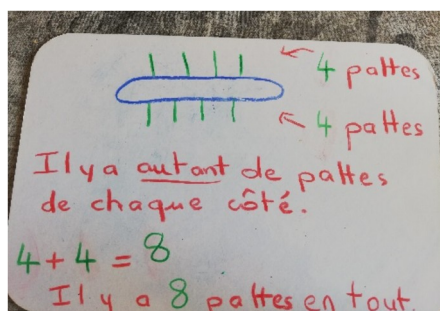 4 pattes
4 pattes
Il y a autant de pattes
de chaque côté.
4 + 4 = 8
Il y a 8 pattes en tout.